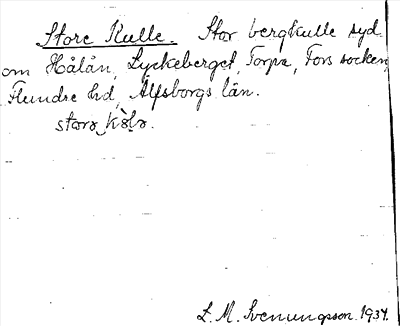 Store Kulle. Stor bergkulle syd
om Hålån, Lyckeberget, Torpa, Fors socken,
Flundre hd, Älfsborgs län.
L. M. Svenungsson. 1934.